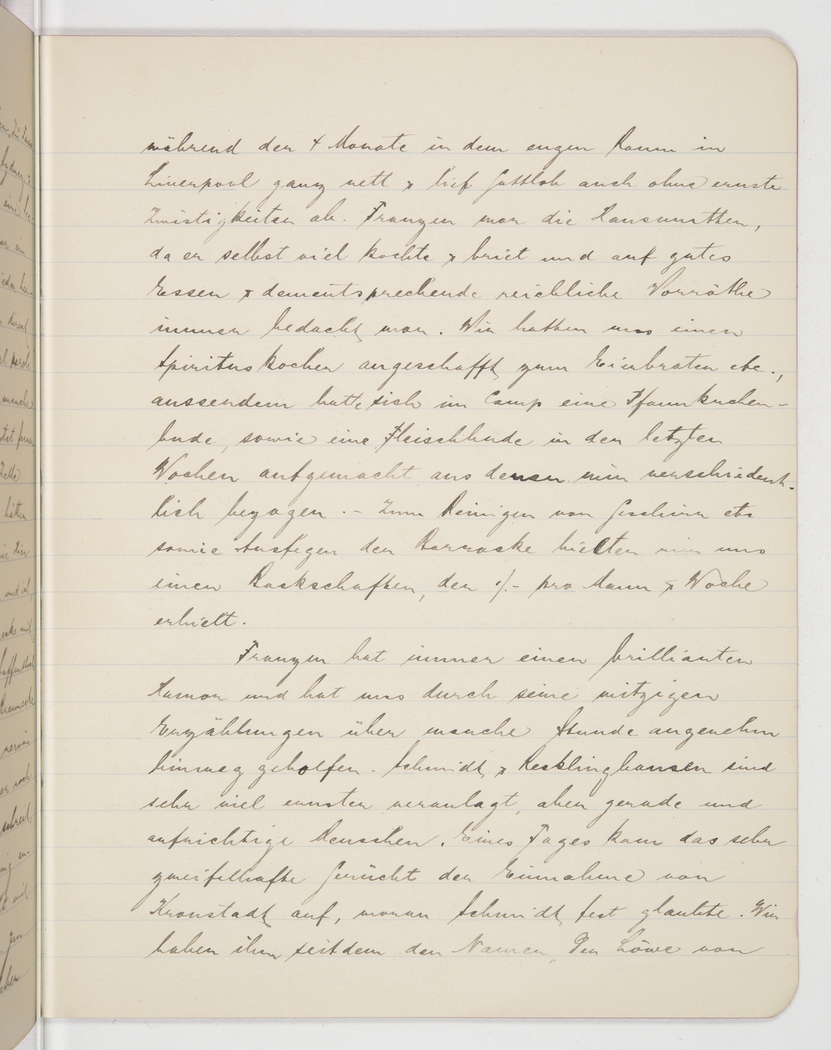 während der 4 Monate in dem engen Raum in
Liverpool ganz nett & lief Gottlob auch ohne ernste
Zwistigkeiten ab. Franzen war die Hausmutter,
da er selbst viel kochte & briet und auf gutes
Essen & dementsprechende reichliche Vorräthe
immer bedacht war. Wir hatten uns einen
Spirituskocher angeschafft, zum Eierbraten etc.,
ausserdem hatte sich im Camp eine Pfannkuchen-
bude, sowie eine Fleischbude in den letzten
Wochen aufgemacht aus denen wir verschiedent-
lich bezogen. - Zum Reinigen von Geschirr etc
sowie Ausfegen der Barracke hielten wir uns
einen Backschafter, der 1/- pro Mann & Woche
erhielt.
Franzen hat immer einen brillianten
Humor und hat uns durch seine witzigen
Erzählungen über manche Stunde angenehm
hinweg geholfen. Schmidt & Recklinghausen sind
sehr viel ernster veranlagt, aber gerade und
aufrichtige Menschen. Eines Tages kam das sehr
zweifelhafte Gerücht der Einnahme von
Kronstadt auf, woran Schmidt fest glaubte. Wir
haben ihm seitdem den Namen, Der Löwe von